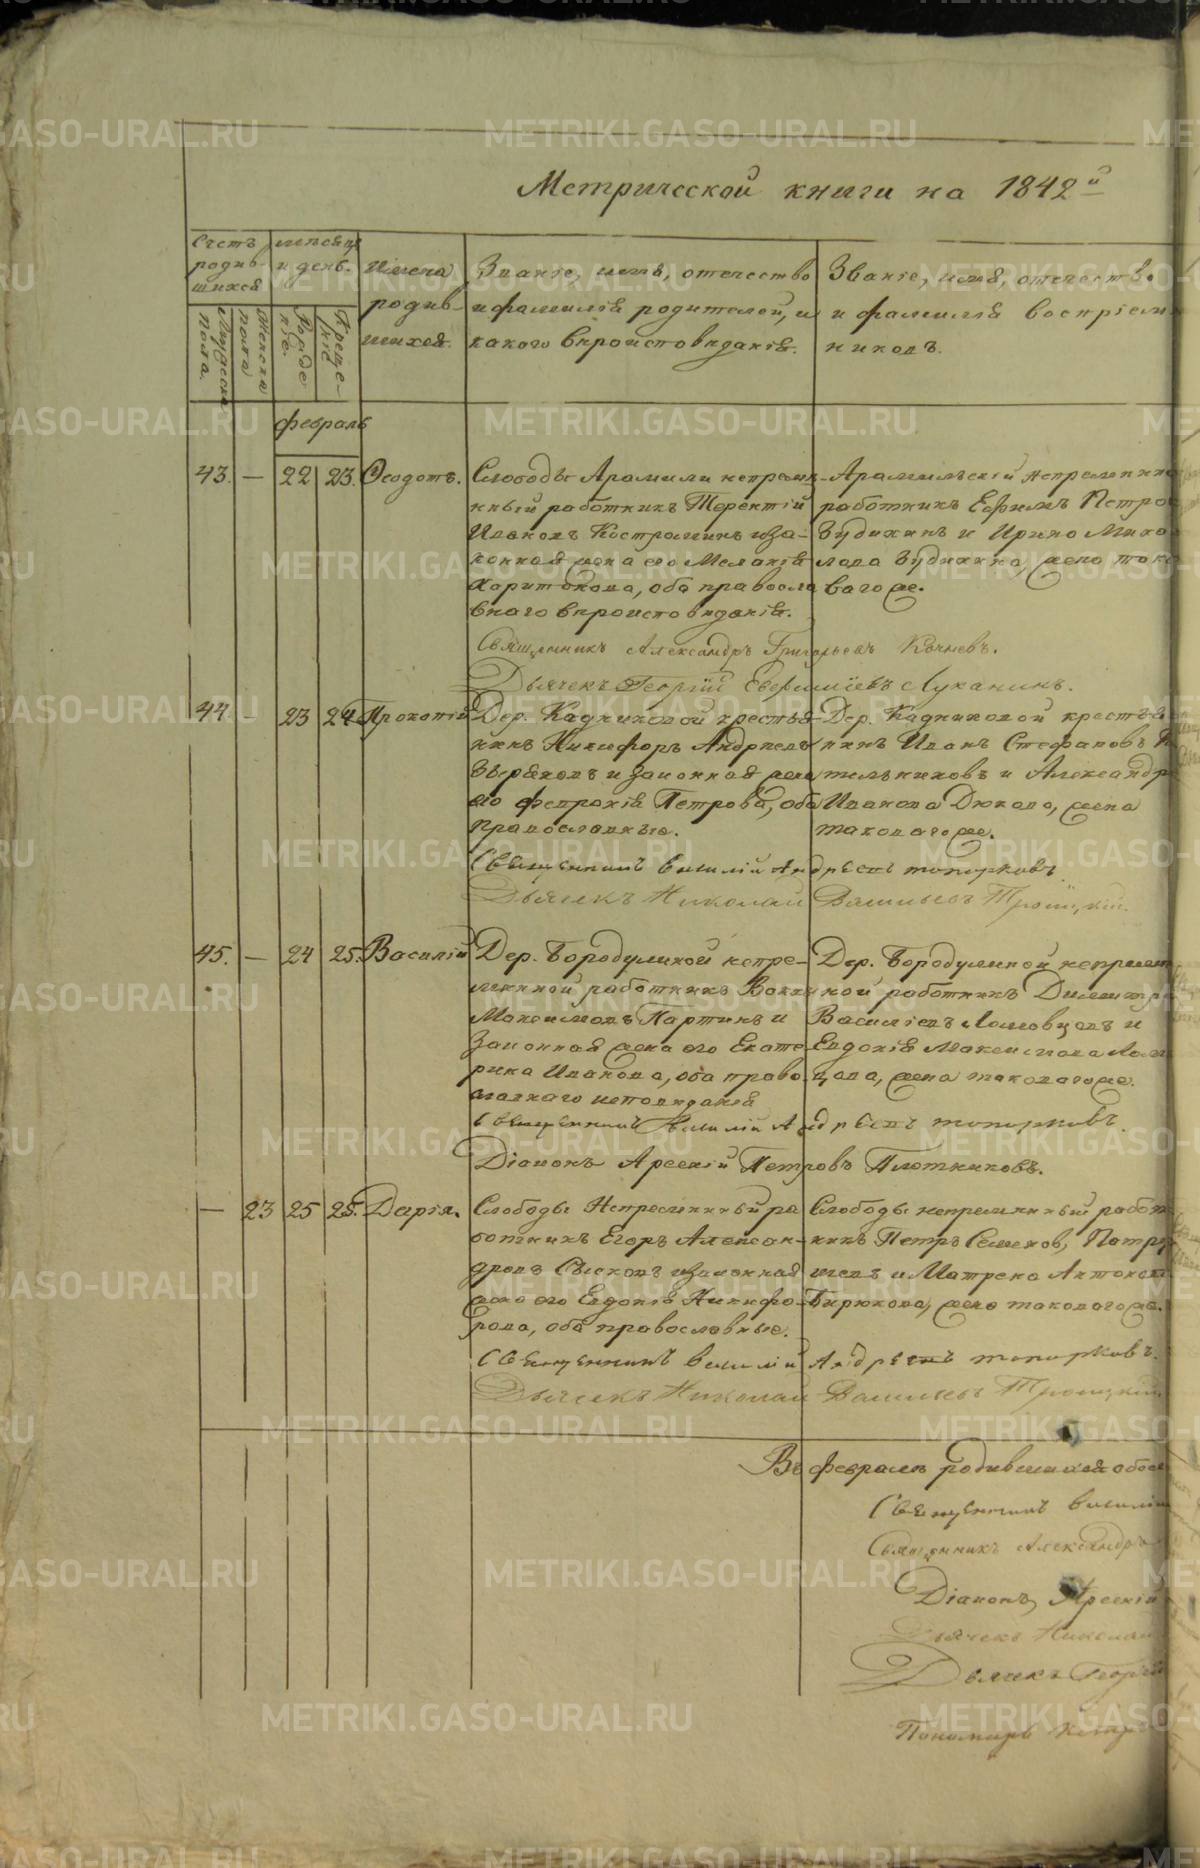 Метрической книги на 1842й
Счетъ родив-шихся
Мужеска пола.
Женска пола
месяцъ и день.
Рожде нія.
Креще-нія
Имена родив-шихся.
Званіе, имя, отечество
и фамилія родителей, и
какого вѣроисповѣданія.
Званіе, имя, отечество
и фамилія воспріем
никовъ.
февраль
43. — 22 23. Ѳеодотъ.
Слободы Арамили непремѣ-
нный работникъ Терентій
Ивановъ Костроминъ и за-
конная жена его Меланія
Харитонова, оба правосла
внаго вѣроисповѣданія.
Арамильскій непременны
работникъ Ефимъ Петро
Зудихинъ и Ирина Миха
лова Зудихина, жена тако
ваго же.
Священникъ Александръ Григорьевъ
Дьячекъ Георгій Евфиміевъ Луканинъ.
44. — 23 24. Прокопій
Дер. Кадниковой крестья-
нинъ Никифоръ Андреевъ
и законная жена
его Петрова, оба
православные.
Дер. Кадниковой крестья
нинъ Иванъ Стефановъ
тельниковъ и Александр
Иванова Дюкова, жена
таковаго же.
Священникъ Василій Андреевъ Топорковъ
Дьячекъ Николай Васильевъ Троицкій.
45. — 24 25. Василій
Дер. Бородулиной непре-
менной работникъ
Максимовъ Партинъ и
Законная жена его Екате-
рина Иванова, оба право
славнаго исповѣданія
Дер. Бородулиной непремен
ной работникъ Димитрі
Василіевъ Ломовцовъ и
Евдокія Максимова Лом
цова, жена таковаго же.
Священникъ Василій Андреевъ Топорковъ.
Діаконъ Арсеній Петровъ Плотниковъ.
— 23 25 25. Дарія.
Слободы Непременный ра
ботникъ Егоръ Алексан-
дровъ Сысковъ и законная
жена его Евдокія Никифо-
рова, оба православные.
Слободы непременный работ
никъ Петръ Семеновъ,
и Матрена Антонов
Бирюкова, жена таковаго же.
Священникъ Василій Андреевъ Топорковъ.
Дьячекъ Николай Васильевъ Троицкій
Въ февралѣ родившихся обое
Священникъ Василій
Священникъ Александръ
Діаконъ, Арсеній
Дьячекъ Николай
Дьячекъ Георгій
Пономарь Петръ
METRIKI.GASO-URAL.RU